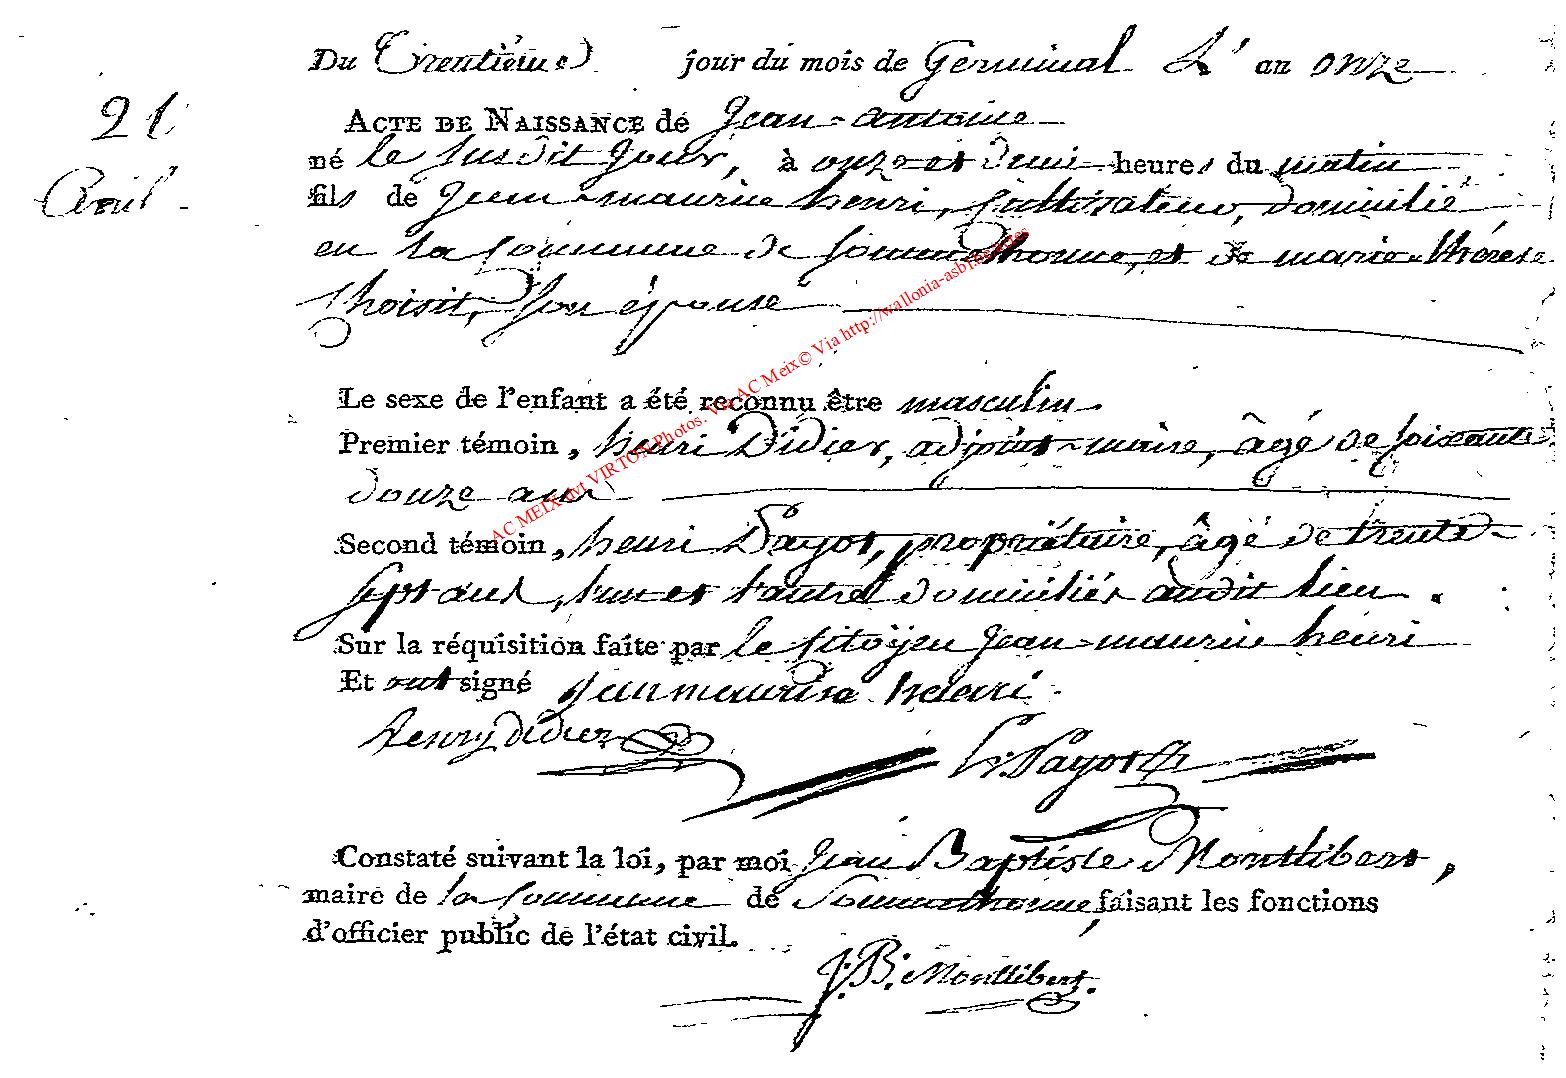 Du Trentième jour du mois de Germinal L' an onze
21
ACTE DE NAISSANCE de Jean-antoine
né le susdit jour, à onze et demi heures du matin
Avril
fils de Jean-maurice henri, Cultivateur, domicilié
en la Commune de Sommethonne, et de marie-thérese
thoisit, son épouse
Le sexe de l'enfant a été reconnu être masculin
Premier témoin, henri Didier, adjoint-maire, âgé de soixante
douze ans
Second témoin, henri Payot, propriétaire, âgé de trente
sept ans, l'un et l'autre domiciliés audit lieu.
Sur la réquisition faite par le Citoÿen Jean-maurice henri
Et ont signé jean maurise henri
henry didier
h. Payot
Constaté suivant la loi, par moi Jean Baptiste Montlibert,
maire de la Commune de Sommethonne, faisant les fonctions
d'officier public de l'état civil.
J: B: Montlibert.
AC MEIX dvt VIRTON Photos. Via AC Meix© Via http://wallonia-asbl.be/actes